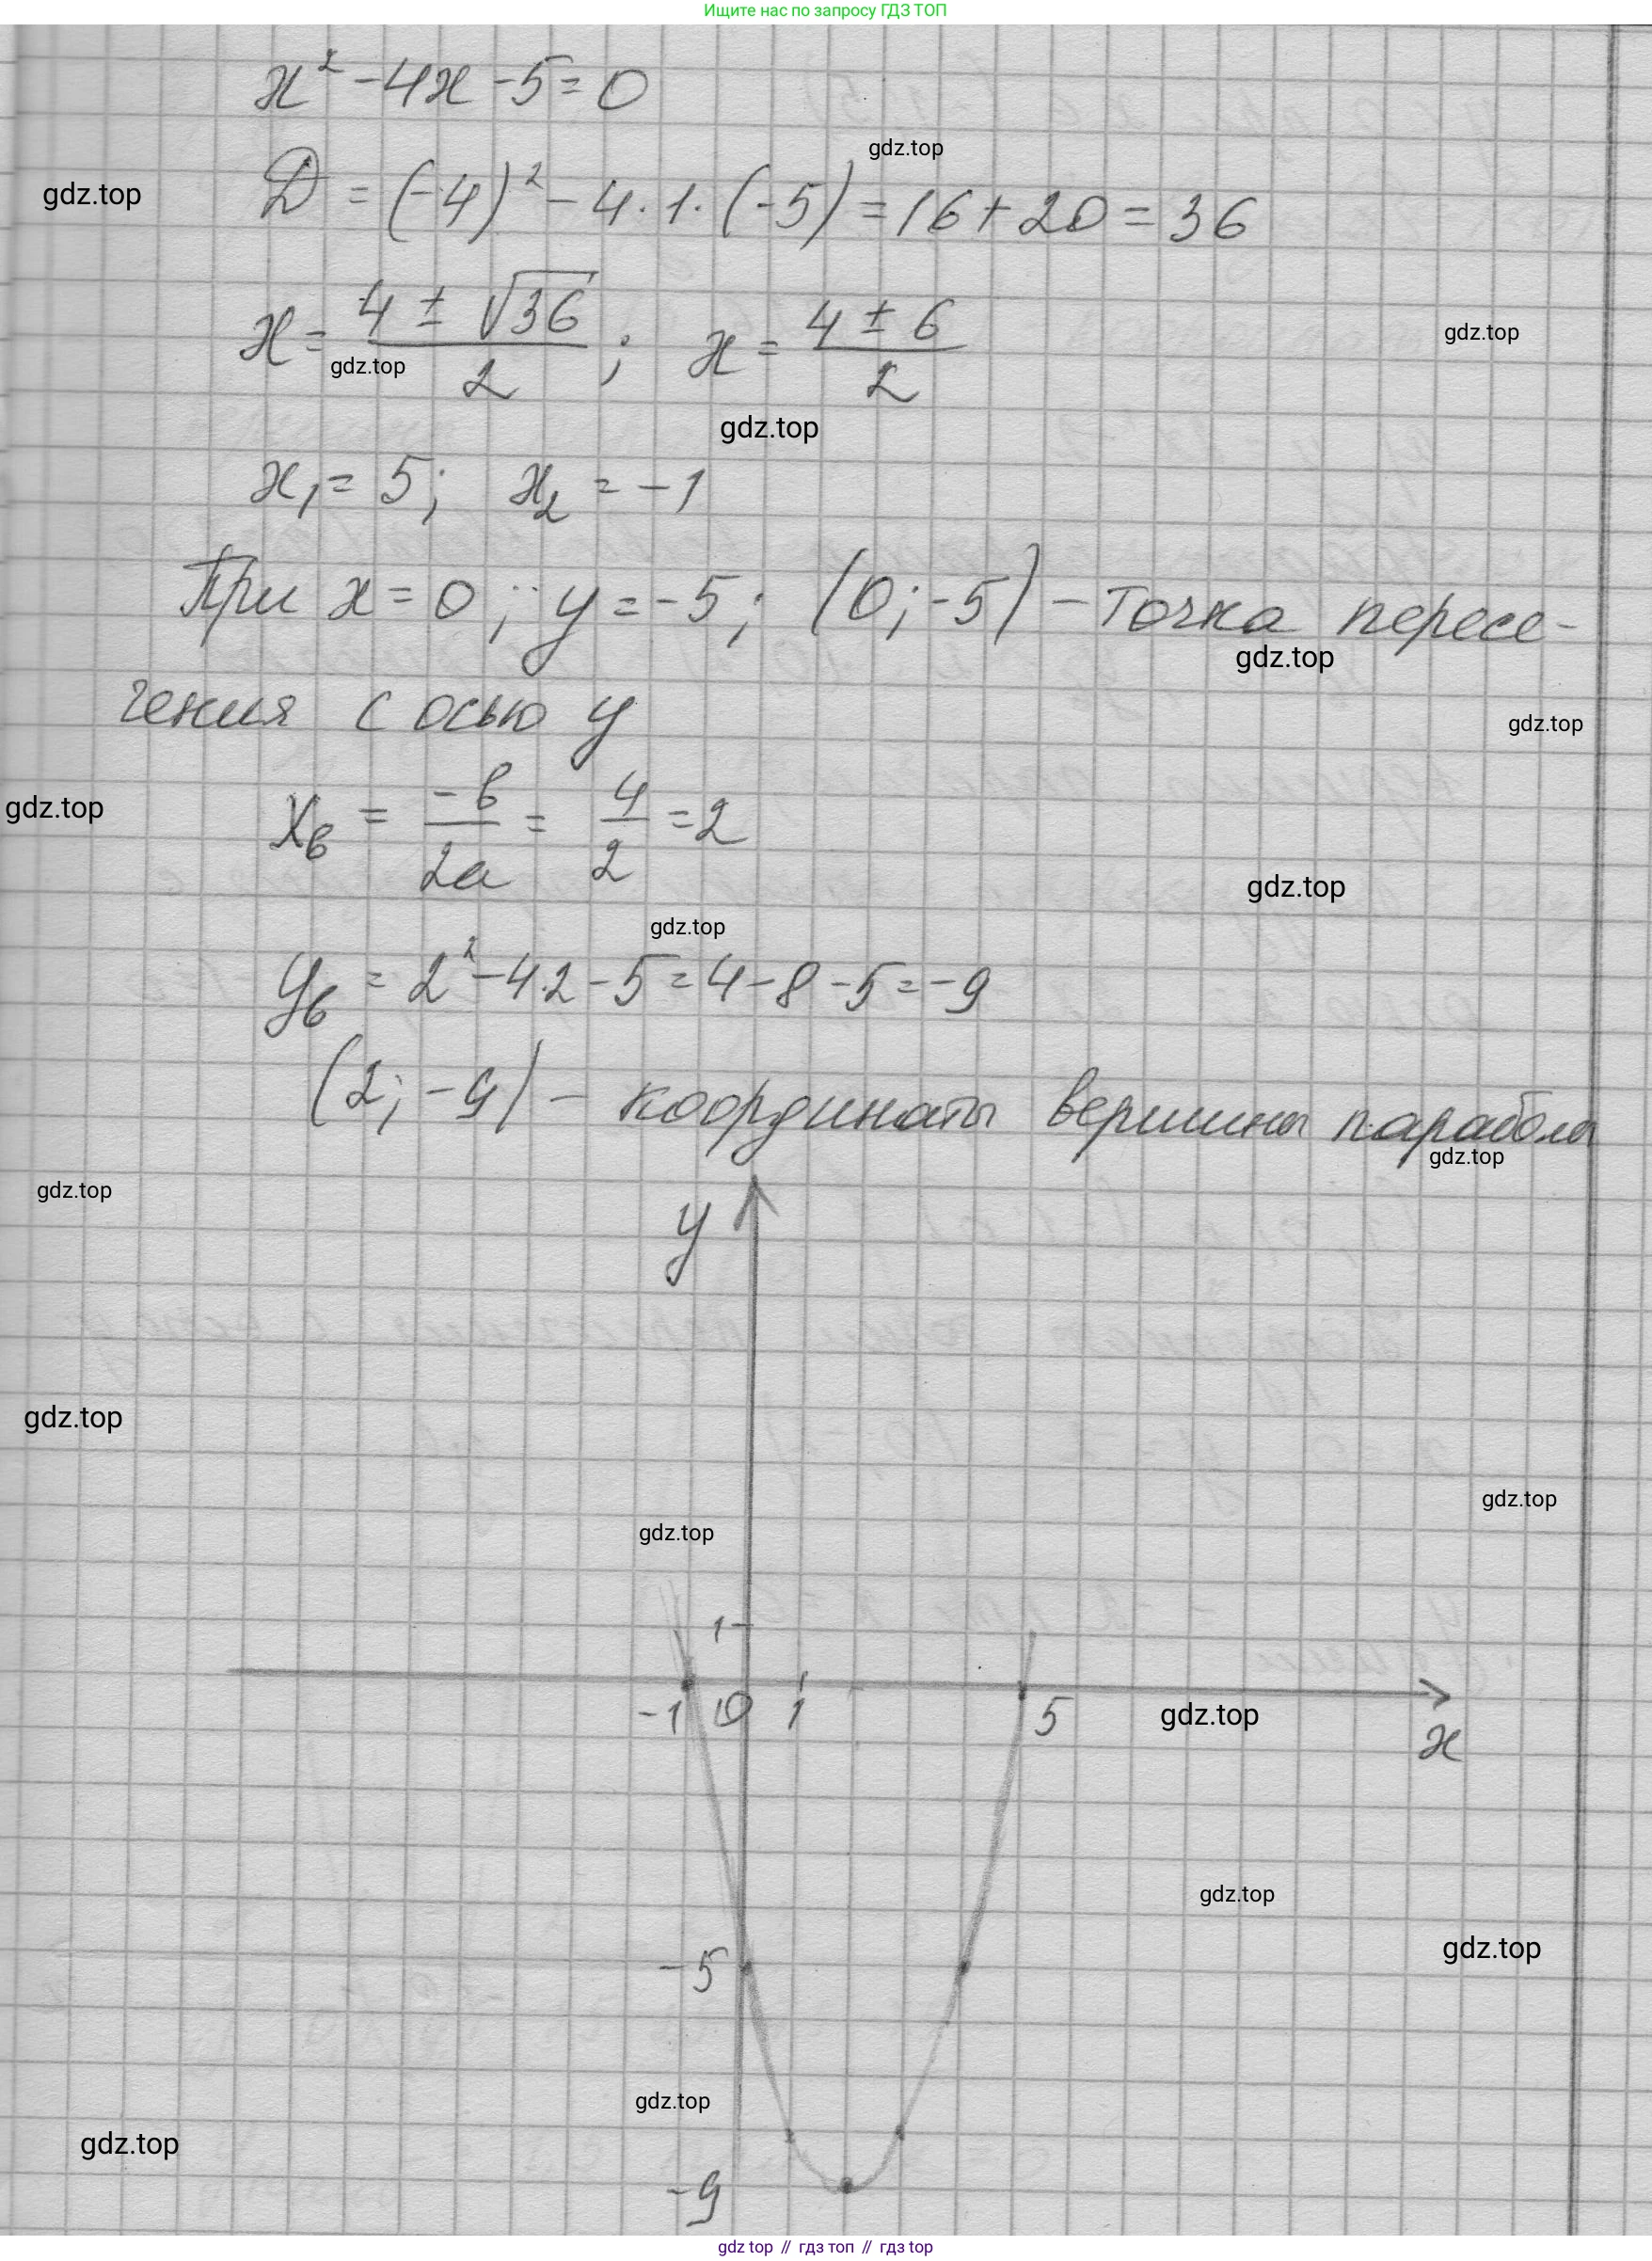 Ищите нас по запросу ГДЗ ТОП
x² - 4x - 5 = 0
gdz.top
gdz.top
D = (-4)² - 4 · 1 · (-5) = 16 + 20 = 36
x = (4 ± √36)/2 ; x = (4 ± 6)/2
gdz.top
gdz.top
gdz.top
x₁ = 5; x₂ = -1
При x = 0; y = -5; (0; -5) - точка пересе-
gdz.top
чения с осью y
gdz.top
gdz.top
xв = -b/2a = 4/2 = 2
gdz.top
gdz.top
yв = 2² - 4·2 - 5 = 4 - 8 - 5 = -9
(2; -9) - координаты вершины параболы
gdz.top
gdz.top
y
gdz.top
gdz.top
gdz.top
1
-1 0 1 5
gdz.top
x
gdz.top
gdz.top
-5
gdz.top
gdz.top
-9
gdz top // гдз топ // гдз top